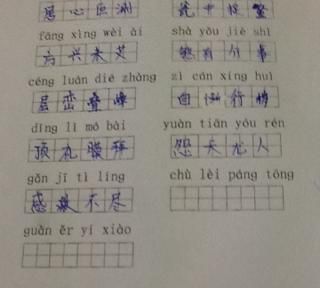 居心叵测 瓮中捉鳖
fāng xìng wèi ài shà yǒu jiè shì
方兴未艾 煞有介事
céng luán dié zhàng zì cán xíng huì
层峦叠嶂 自惭行
dǐng lǐ mó bài yuàn tiān yóu rén
顶礼膜拜 怨天尤人
gǎn jī tì líng chù lèi páng tōng
感激不尽
guǎn ěr yí xiào